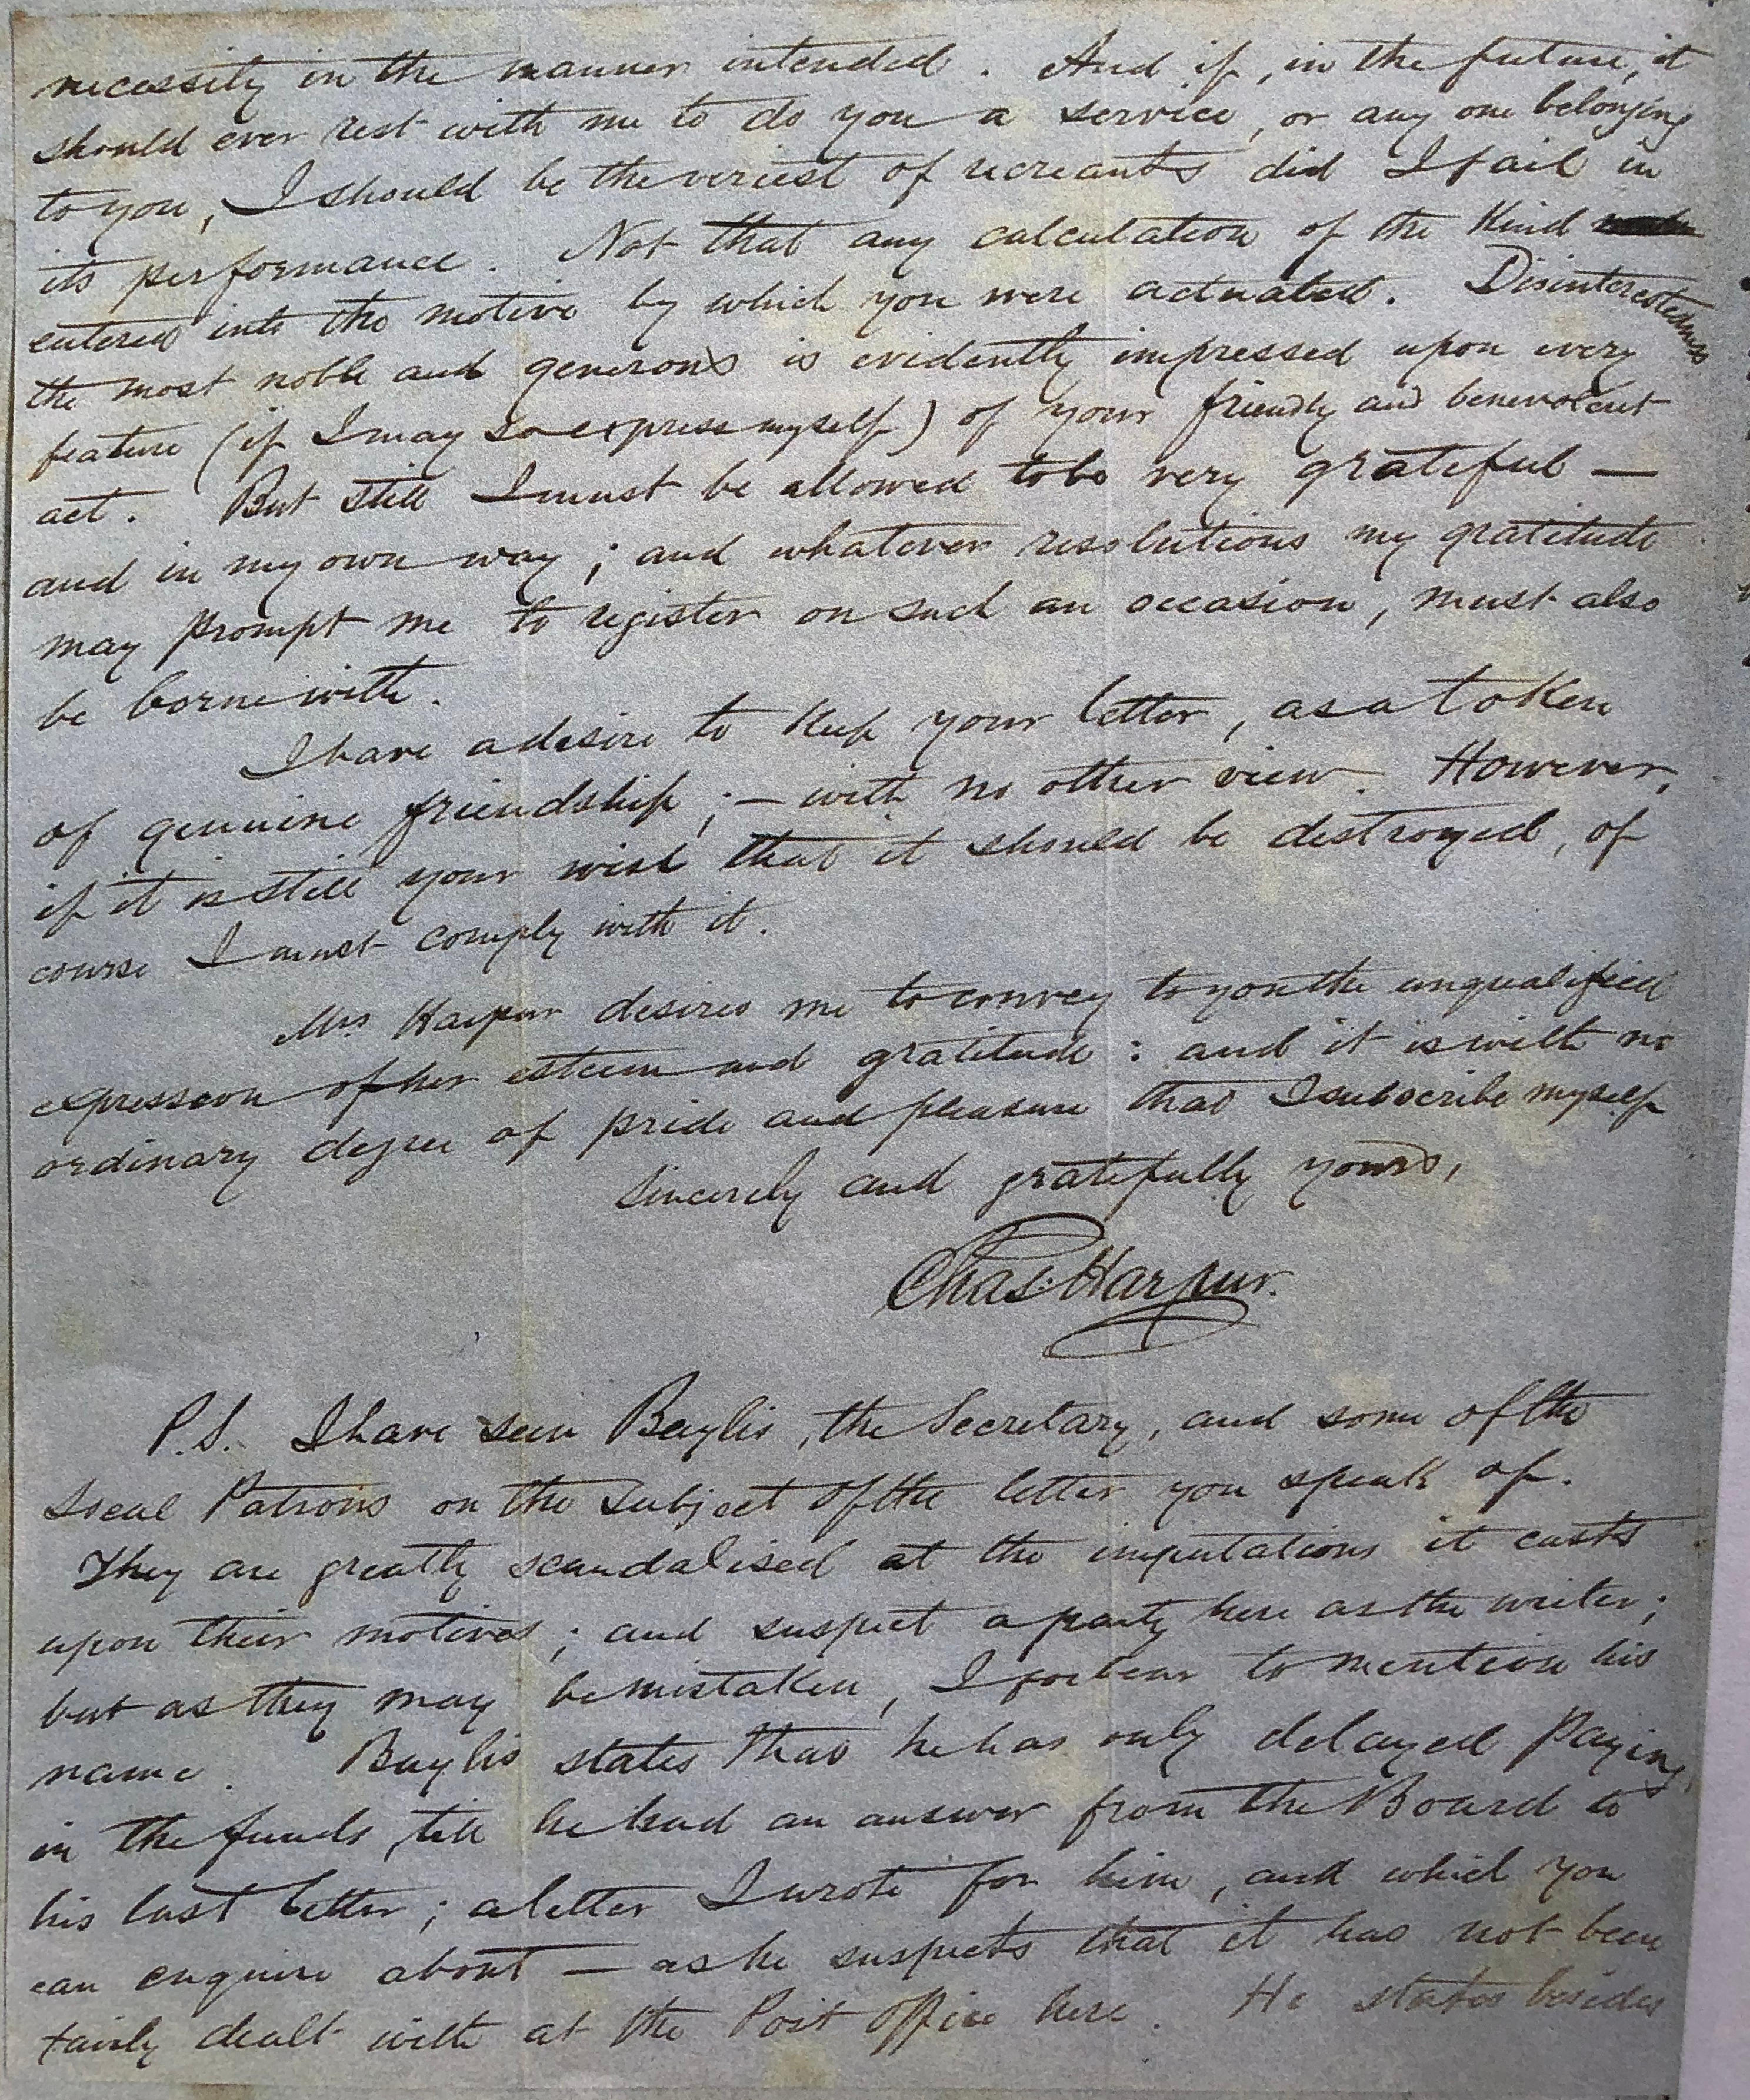 necessity in the manner intended. And if, in the future, it
should ever rest with me to do you a service, or any one belonging
to you, I should be the veriest of recreants did I fail in
its performance. Not that any calculation of the kind
entered into the motive by which you were actuated. Disinterestedness
the most noble and generous is evidently impressed upon every
feature (if I may so express myself) of your friendly and benevolent
act. But still I must be allowed to be very grateful —
and in my own way; and whatever resolutions my gratitude
may prompt me to register on such an occasion, must also
be borne with.
I have a desire to keep your letter, as a token
of genuine friendship; — with no other view. However,
if it is still your wish that it should be destroyed, of
course I must comply with it.
Mrs Harpur desires me to convey to you the unqualified
expression of her esteem and gratitude: and it is with no
ordinary degree of pride and pleasure that I subscribe myself
Sincerely and gratefully yours,
Chas. Harpur.
P.S. I have seen Baylis, the Secretary, and some of the
Local Patrons on the subject of the letter you speak of.
They are greatly scandalised at the imputations it casts
upon their motives; and suspect a party here as the writer;
but as they may be mistaken, I forbear to mention his
name. Baylis states that he has only delayed paying
in the funds, till he had an answer from the Board to
his last letter; a letter I wrote for him, and which you
can enquire about — as he suspects that it has not been
fairly dealt with at the Post Office here. He states besides